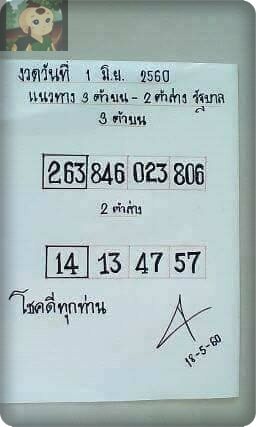 งวดวันที่ 1 มิ.ย. 2560
แนวทาง 3 ตัวบน - 2 ตัวล่าง รัฐบาล
3 ตัวบน
263 846 023 806
2 ตัวล่าง
14 13 47 57
โชคดีทุกท่าน
18-5-60